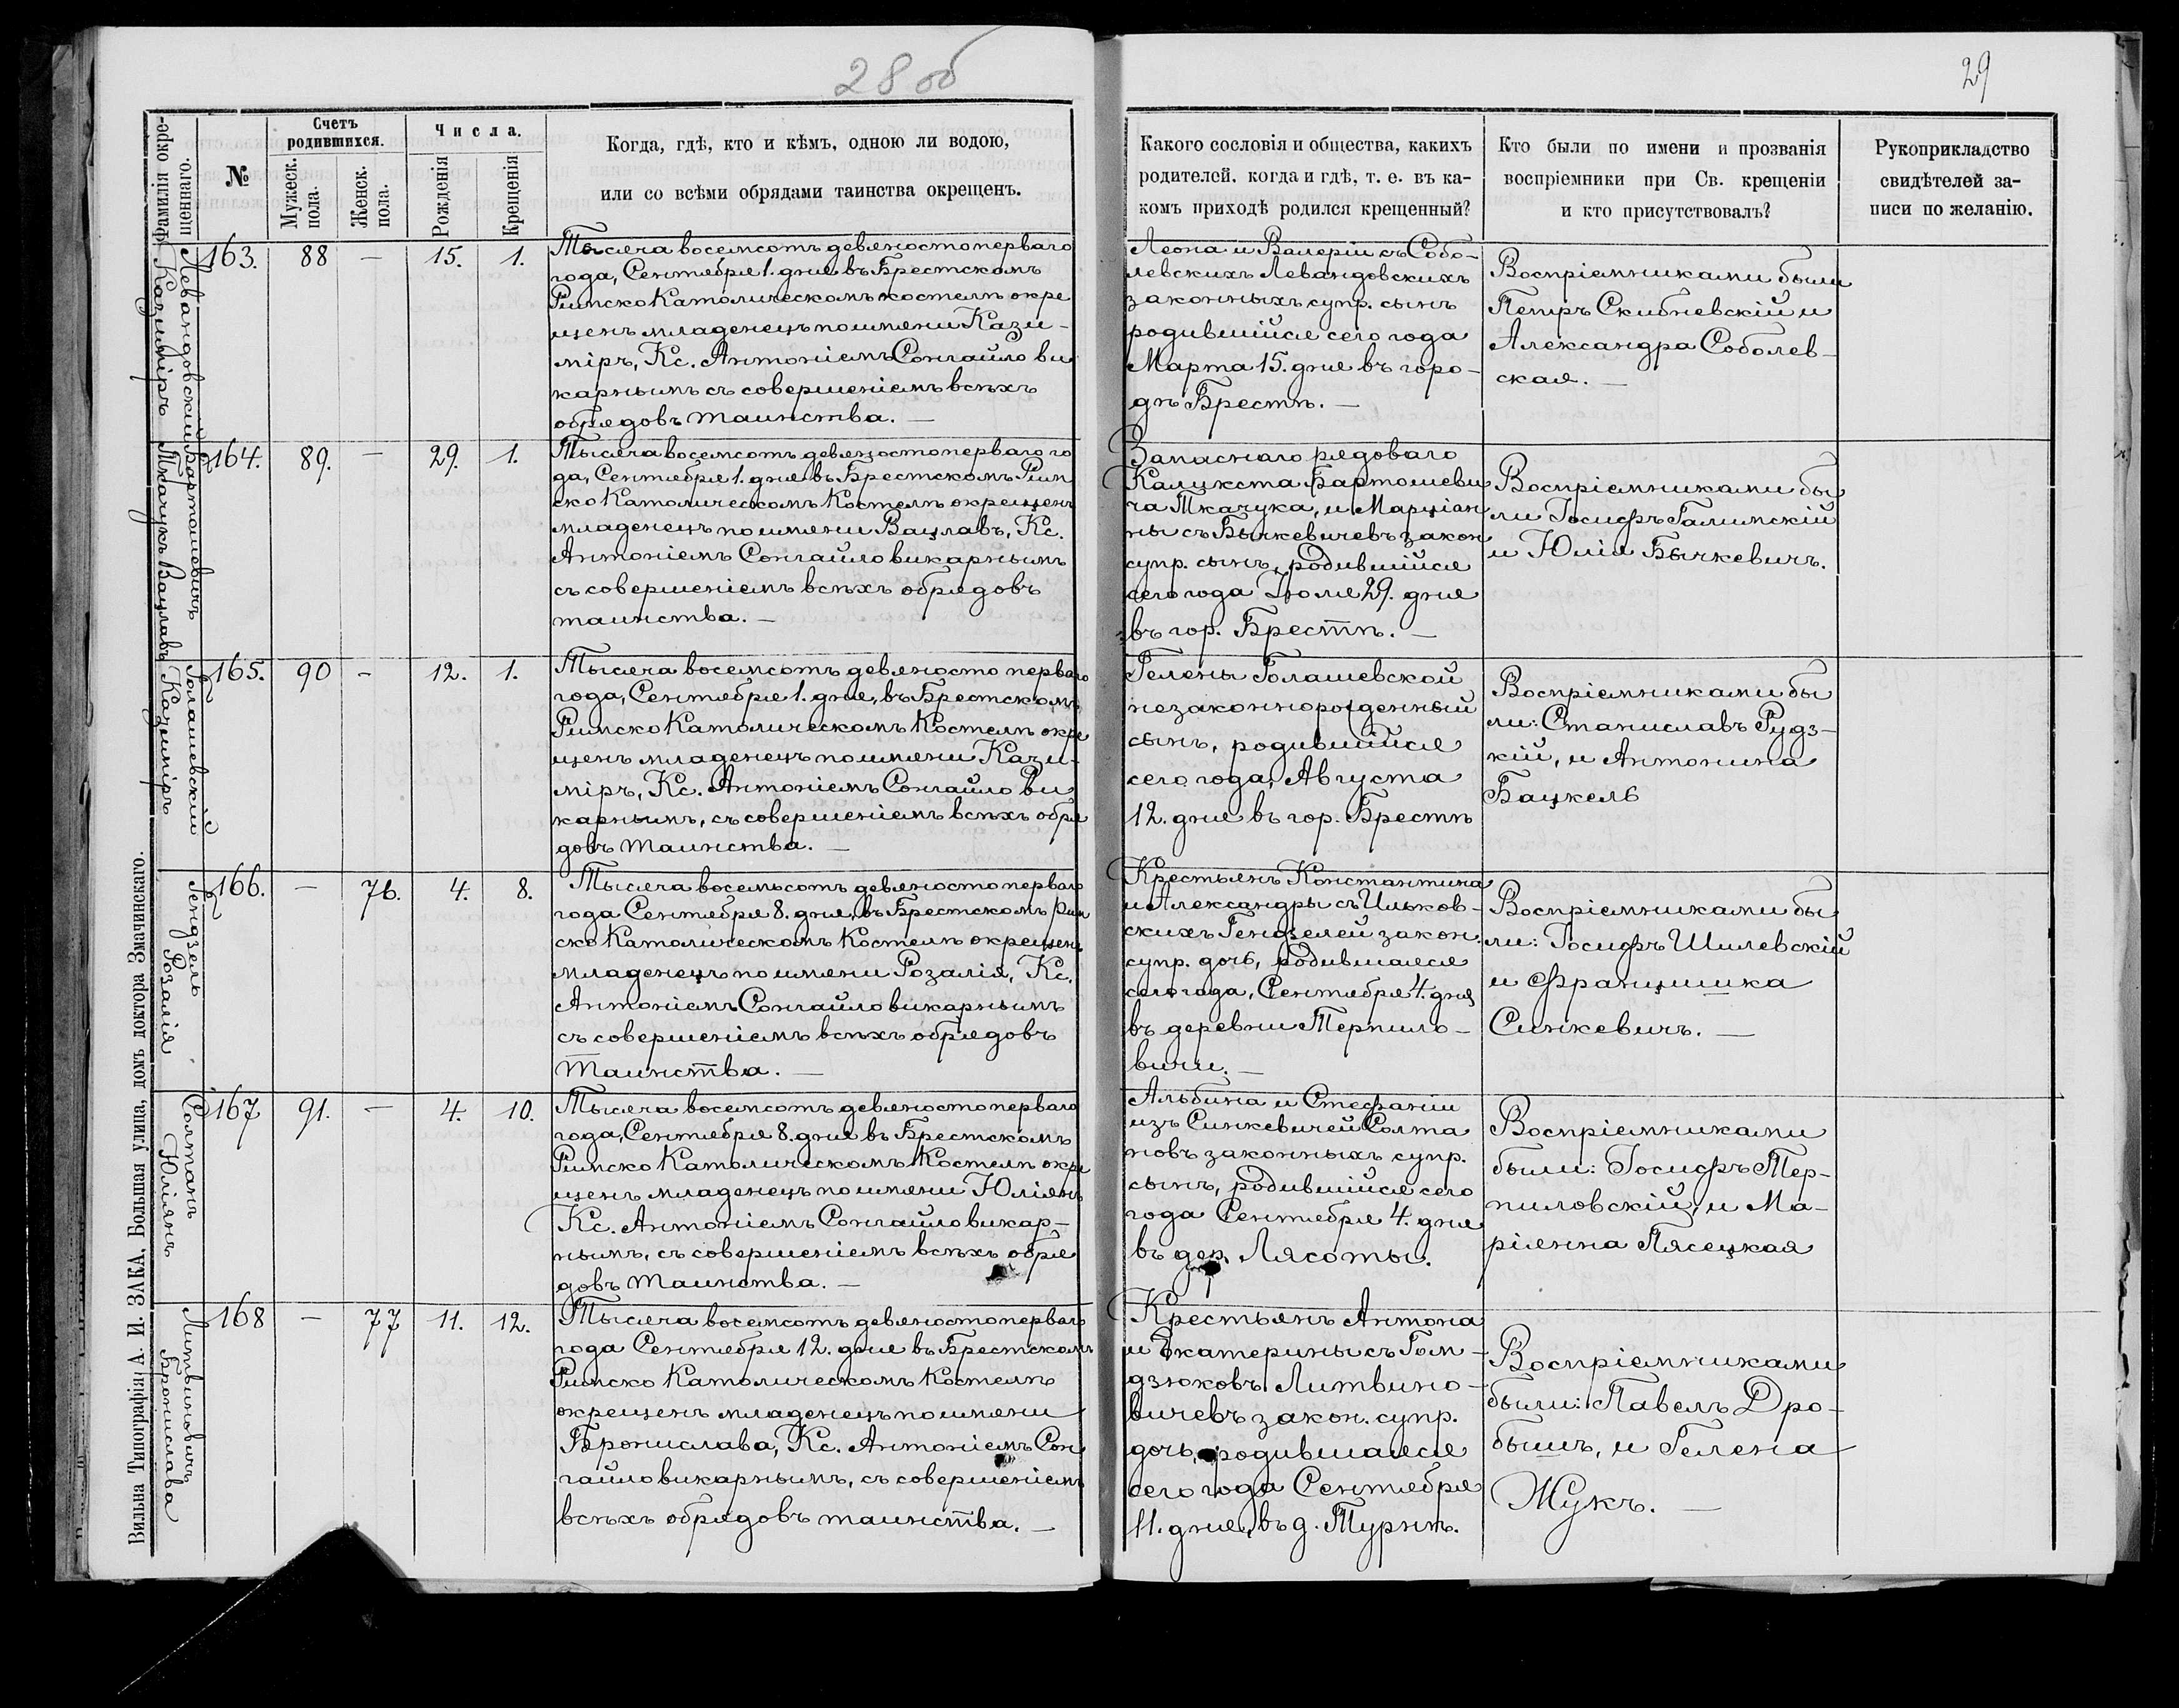 28 об
29
Фамилія окре-
щеннаго.
№
Счетъ
родившихся.
Мужеск.
пола.
Женск.
пола.
Числа.
Рожденія
Крещенія
Когда, гдѣ, кто и кѣмъ, одною ли водою,
или со всѣми обрядами таинства окрещенъ.
Какого сословія и общества, какихъ
родителей, когда и гдѣ, т. е. въ ка-
комъ приходѣ родился крещенный?
Кто были по имени и прозванія
воспріемники при Св. крещеніи
и кто присутствовалъ?
Рукоприкладство
свидѣтелей за-
писи по желанію.
Левандовскій
Казиміръ
163. 88 — 15. 1.
Тысяча восемсотъ девяносто перваго
года, Сентября 1. дня въ Брестскомъ
Римско Католическомъ костелѣ окре
щенъ младенецъ по имени Кази-
міръ, Кс. Антоніемъ Сонгайло ви
карнымъ съ совершеніемъ всѣхъ
обрядовъ таинства. —
Леона и Валеріи съ Собо-
левскихъ Левандовскихъ
законныхъ супр. сынъ
родившійся сего года
Марта 15. дня въ горо-
дѣ Брестѣ. —
Воспріемниками были
Петръ Скибневскій и
Александра Соболев-
ская. —
Бартошевичъ
Ткачукъ Вацлавъ
164. 89. — 29. 1.
Тысяча восемсотъ девяносто перваго го
да, Сентября 1. дня въ Брестскомъ Рим
ско Католическомъ Костелѣ окрещенъ
младенецъ по имени Вацлавъ, Кс.
Антоніемъ Сонгайло викарнымъ
съ совершеніемъ всѣхъ обрядовъ
таинства. —
Запаснаго рядоваго
Каликста Бартошеви
ча Ткачука, и Марціан
ны съ Бычкевичевъ закон
супр. сынъ, родившійся
сего года Іюля 29. дня
въ гор. Брестѣ. —
Воспріемниками бы
ли Іосифъ Галимскій
и Юлія Бычкевичъ.
Голашевскій
Казиміръ
165. 90 - 12. 1.
Тысяча восемсотъ девяносто перваго
года, Сентября 1. дня, въ Брестскомъ
Римско Католическомъ Костелѣ окре
щенъ младенецъ по имени Кази-
міръ, Кс. Антоніемъ Сонгайло ви
карнымъ, съ совершеніемъ всѣхъ обря
довъ таинства. —
Гелены Голашевской
незаконнорожденный
сынъ, родившійся
сего года, Августа
12. дня въ гор. Брестѣ
Воспріемниками бы
ли: Станиславъ Рудз-
кій, и Антонина
Бацкель
Гендзель
Розалія
166. — 76. 4. 8.
Тысяча восемьсотъ девяносто перваго
года Сентября 8. дня, въ Брестскомъ Рим
ско Католическомъ Костелѣ окрещенъ
младенецъ по имени Розалія, Кс.
Антоніемъ Сонгайло викарнымъ
съ совершеніемъ всѣхъ обрядовъ
таинства. —
Крестьянъ Константина
и Александры съ Ильков-
скихъ Гендзелей закон.
супр. дочь, родившаяся
сего года, Сентября 4. дня
въ деревни Терпило-
вичи. —
Воспріемниками бы
ли: Іосифъ Шилевскій
и Францишка
Синкевичъ. —
Солтанъ
Юліянъ
167 91. — 4. 10.
Тысяча восемсотъ девяносто перваго
года, Сентября 8. дня въ Брестскомъ
Римско Католическомъ Костелѣ окре
щенъ младенецъ по имени Юліянъ
Кс. Антоніемъ Сонгайло викар-
нымъ, съ совершеніемъ всѣхъ обря
довъ таинства. —
Альбина и Стефаніи
изъ Синкевичей Солта
новъ законныхъ супр.
сынъ, родившійся сего
года Сентября 4. дня
въ дер. Лясоты.
Воспріемниками
были: Іосифъ Тер-
пиловскій, и Ма-
ріянна Пясецкая
Литвиновичъ
Бронислава
168 — 77 11. 12.
Тысяча восемсотъ девяносто перваго
года Сентября 12. дня въ Брестскомъ
Римско Католическомъ Костелѣ
окрещенъ младенецъ по имени
Бронислава, Кс. Антоніемъ Сон
гайло викарнымъ, съ совершеніемъ
всѣхъ обрядовъ таинства. —
Крестьянъ Антона
и Екатерины съ Гом-
дзюковъ Литвино-
вичевъ закон. супр.
дочь, родившаяся
сего года Сентября
11. дня, въ д. Турнѣ.
Воспріемниками
были: Павелъ Дро-
бышъ, и Гелена
Жукъ. —
Вильна Типографія А. И. ЗАКА, Большая улица, домъ доктора Змачинскаго.